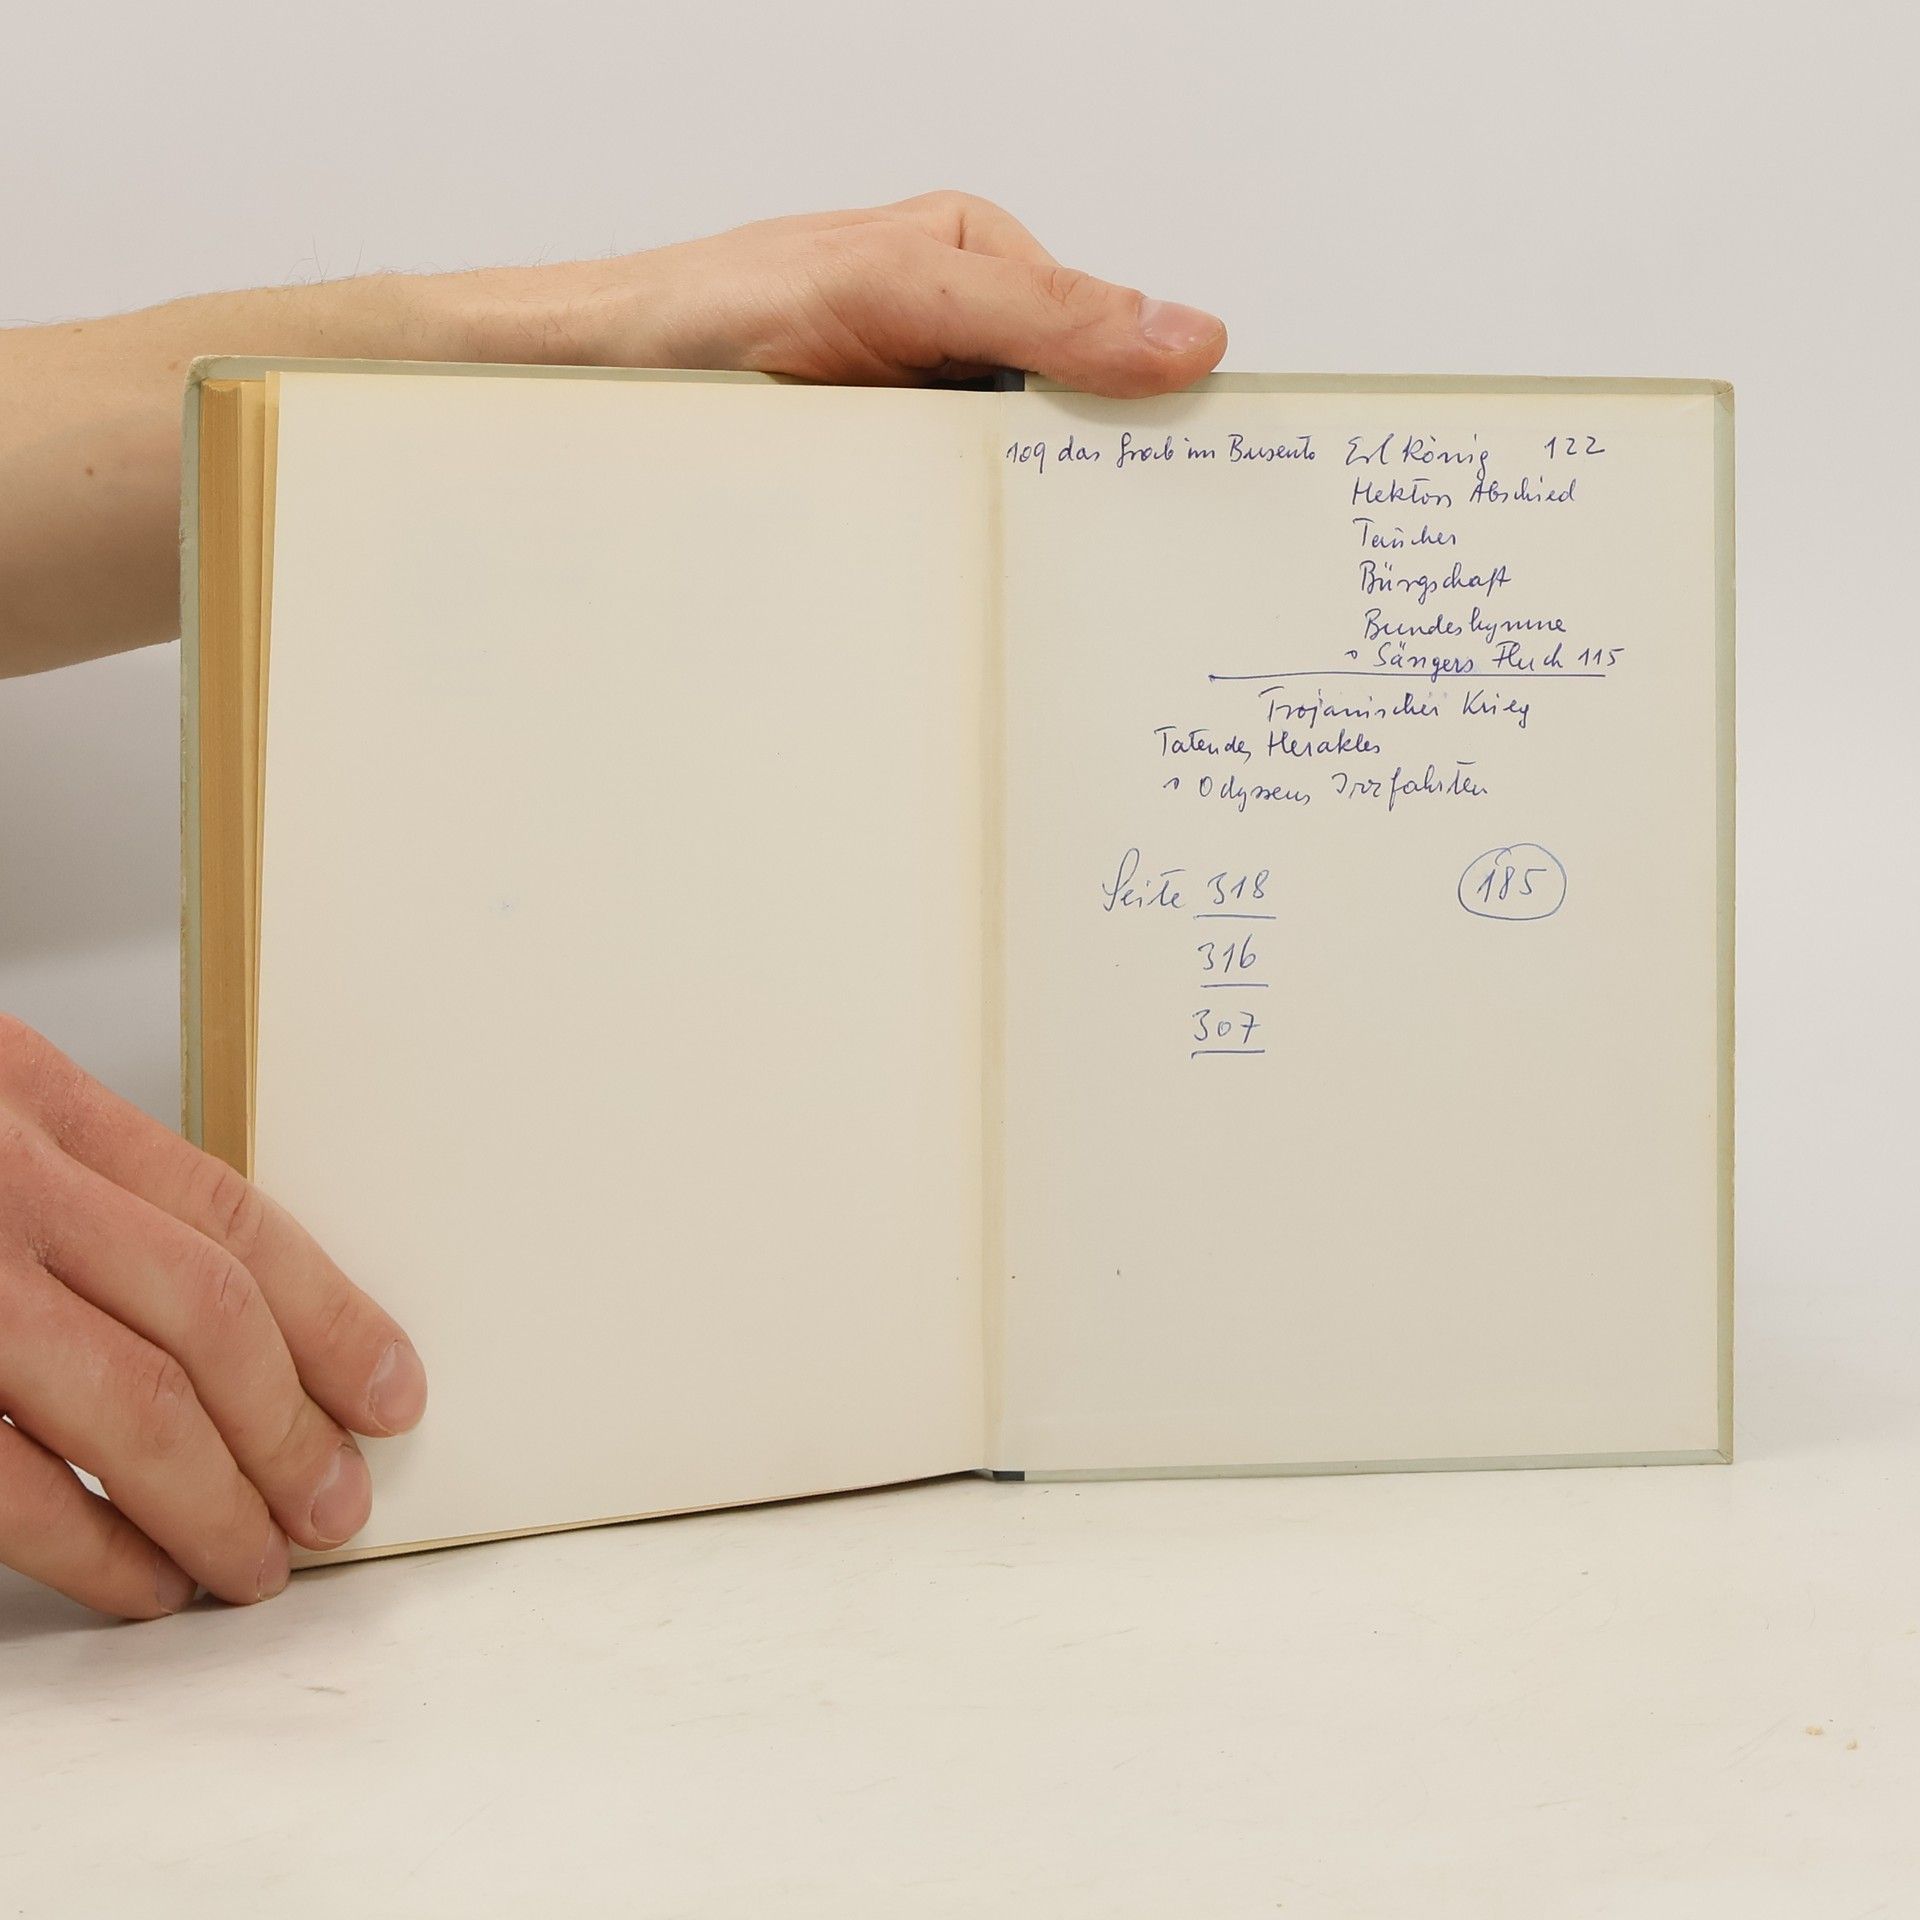 109 das Grab im Busento Erlkönig 122
Hektors Abschied
Taucher
Bürgschaft
Bundeshymne
° Sängers Fluch 115
Trojanischer Krieg
Taten des Herakles
° Odysseus Irrfahrten
Seite 318 185
316
307